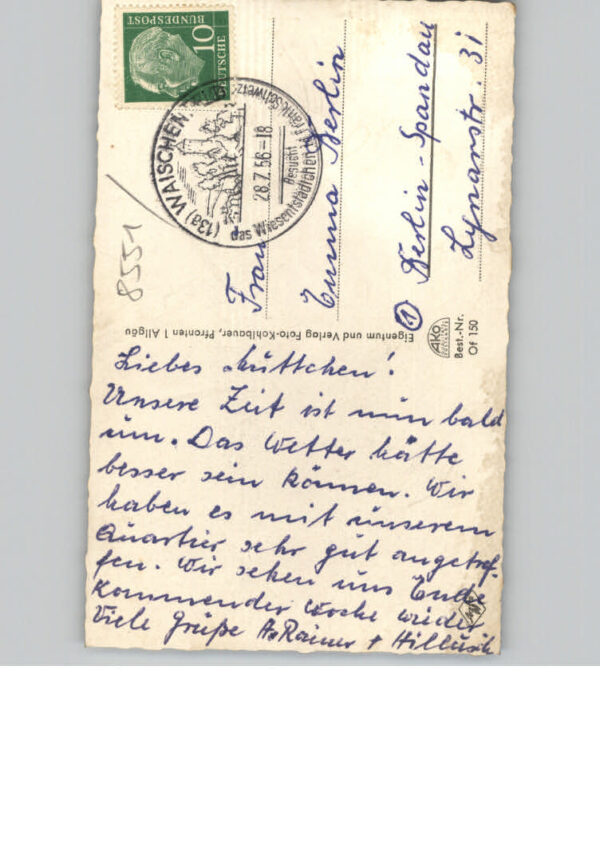 DEUTSCHE
BUNDESPOST
10
(13a) WAISCHEN
28.7.56-18
Besucht
das Wiesentstädtchen
Fränk. Schweiz
8551
Frau
Emma Berlin
① Berlin-Spandau
Lynarstr. 31
Eigentum und Verlag Foto-Kohlbauer, Pfronten 1 Allgäu
AKO
Best.-Nr.
Of 150
Liebes Muttchen!
Unsere Zeit ist nun bald
um. Das Wetter hätte
besser sein können. Wir
haben es mit unserem
Quartier sehr gut angetrof-
fen. Wir sehen uns Ende
kommender Woche wieder
Viele Grüße Rainer +